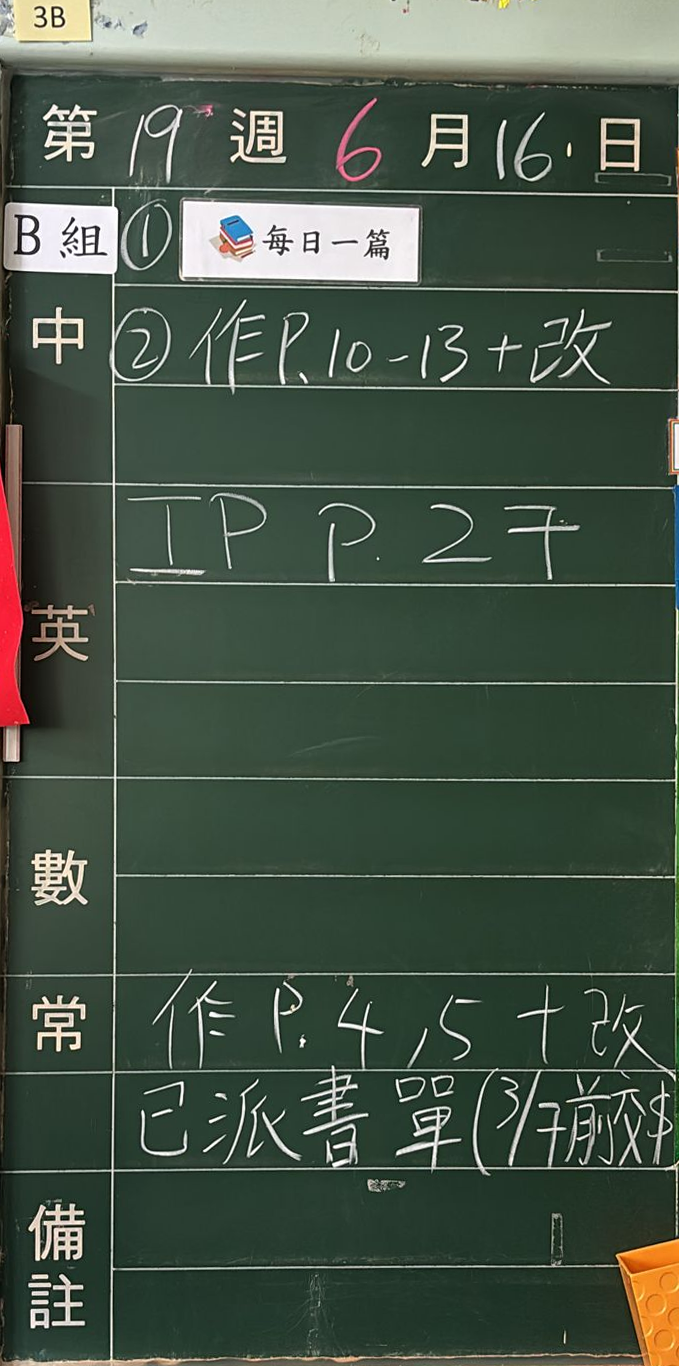 3B
第 19 週 6 月 16 日
B組 ① 每日一篇
中 ② 作P.10-13+改
英 IP P.27
數
常 作P.4,5+改
已派書單(3/7前交$
備註